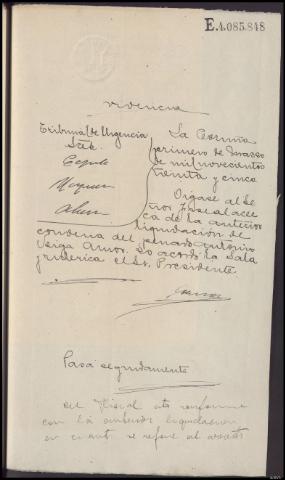 E.4.085.848
Providencia
Tribunal de Urgencia
Sres.
La Coruña
primero de Marzo
de mil novecientos
treinta y cinco
Dígase al Se
ñor Fiscal acer
ca de la anterior
liquidación de
condena del penado Antonio
Veiga Amor. Lo acordó la Sala
y rubrica el Sr. Presidente
Pasa seguidamente
El Fiscal está conforme
con la anterior liquidación
en cuanto se refiere al arresto